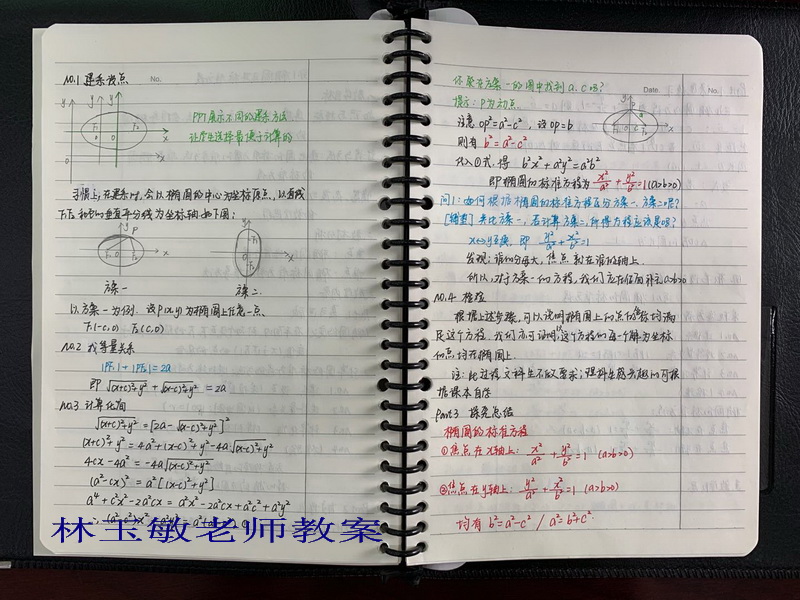 NO.1 建系设点
No.
PPT展示不同的建系方法
让学生选择最便于计算的
习惯上,在建系时,会以椭圆的中心为坐标原点,以直线
F₁F₂和它的垂直平分线为坐标轴,如下图:
方案一 方案二
以方案一为例. 设P(x,y)为椭圆上任意一点、
F₁(-c,0) F₂(c,0)
NO.2 找等量关系
|PF₁|+|PF₂|=2a
即 √(x+c)²+y² + √(x-c)²+y² = 2a
NO.3 计算化简
√(x+c)²+y² = [2a-√(x-c)²+y²]²
(x+c)²+y² = 4a²+(x-c)²+y²-4a√(x-c)²+y²
4cx-4a² = -4a√(x-c)²+y²
(a²-cx)² = a²[(x-c)²+y²]
a⁴+c²x²-2a²cx = a²x²-2a²cx+a²c²+a²y²
林玉敏老师教案
你能在方案一的图中找到a.c吗?
Date.
提示:P为动点.
注意 OP²=a²-c² 设OP=b
则有 b²=a²-c²
代入①式,得 b²x²+a²y²=a²b²
即椭圆的标准方程为 x²/a²+y²/b²=1(a>b>0)
问1:如何根据椭圆的标准方程区分方案一、方案二呢?
[铺垫] 类比方案一,若计算方案二,所得方程应该是啥?
x↔y互换,即 y²/a²+x²/b²=1
发现:谁的分母大,焦点就在谁的轴上.
所以,对于方案一的方程,我们应在后面补充a>b>0
NO.4 检验
根据上述步骤,可以说明椭圆上的点的坐标均满
足这个方程. 我们亦可证明以这个方程的每一个解为坐标
的点均在椭圆上.
注:此过程文科生不做要求;理科生感兴趣的可根
据课本自学
Part 3 探究总结
椭圆的标准方程
①焦点在x轴上: x²/a²+y²/b²=1 (a>b>0)
②焦点在y轴上: y²/a²+x²/b²=1 (a>b>0)
均有 b²=a²-c² / a²=b²+c².